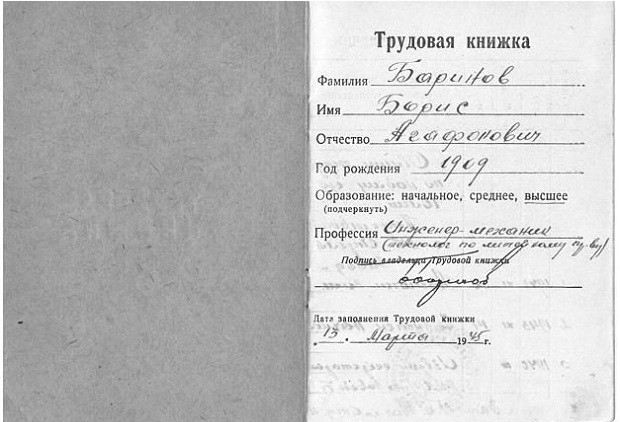 Трудовая книжка
Фамилия Баринов
Имя Борис
Отчество Агафонович
Год рождения 1909
Образование: начальное, среднее, высшее
(подчеркнуть)
Профессия Инженер-механик
(технолог по литейному пр-ву)
Подпись владельца Трудовой книжки
Баринов
Дата заполнения Трудовой книжки
13. Марта 1945 г.